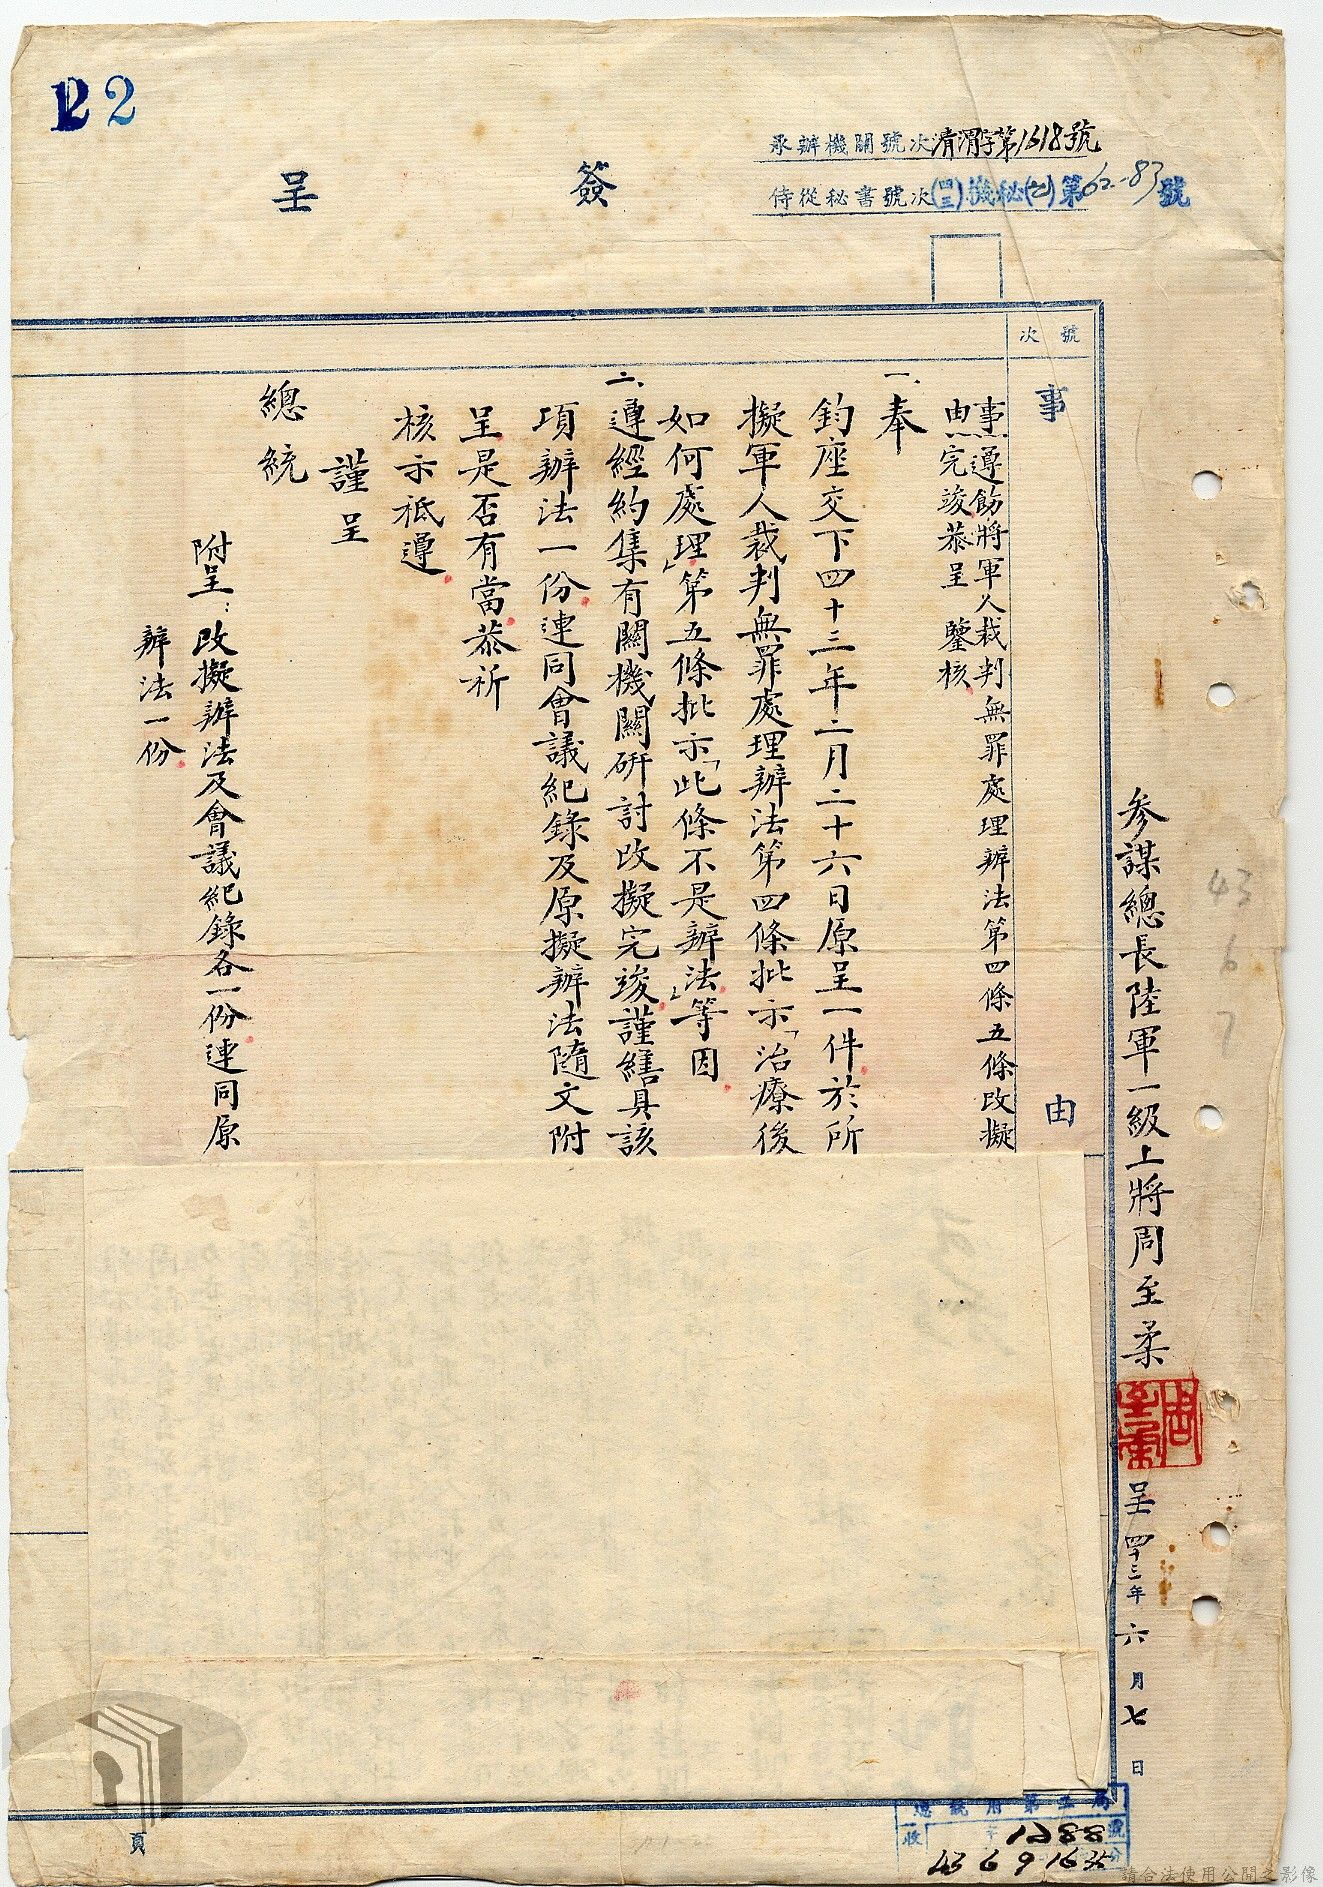 122
簽呈
承辦機關號次清澗字第1618號
侍從秘書號次(四三)機秘(乙)第62-83號
號次
事由
事由:遵飭將軍人裁判無罪處理辦法第四條五條改擬
完竣恭呈 鑒核
一、奉
鈞座交下四十三年二月二十六日原呈一件於所
擬軍人裁判無罪處理辦法第四條批示「治療後
如何處理」第五條批示「此條不是辦法」等因
二、遵經約集有關機關研討改擬完竣謹繕具該
項辦法一份連同會議紀錄及原擬辦法隨文附
呈是否有當恭祈
核示祗遵
謹呈
總統
附呈:改擬辦法及會議紀錄各一份連同原
辦法一份
參謀總長陸軍一級上將周至柔
周至柔
呈四十三年六月七日
43
6
7
總統府第二局
收 字 1288 號
43 6 9 16 35 分
頁
請合法使用公開之影像